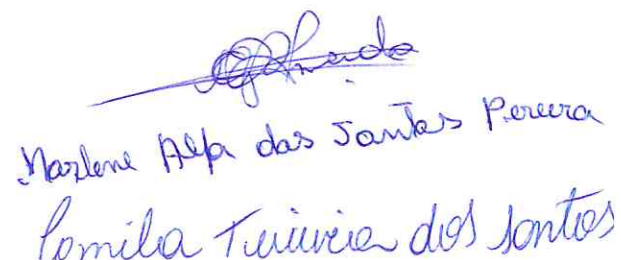 Marlene Alfa das Santas Pereira
Camila Teixeira dos Santos